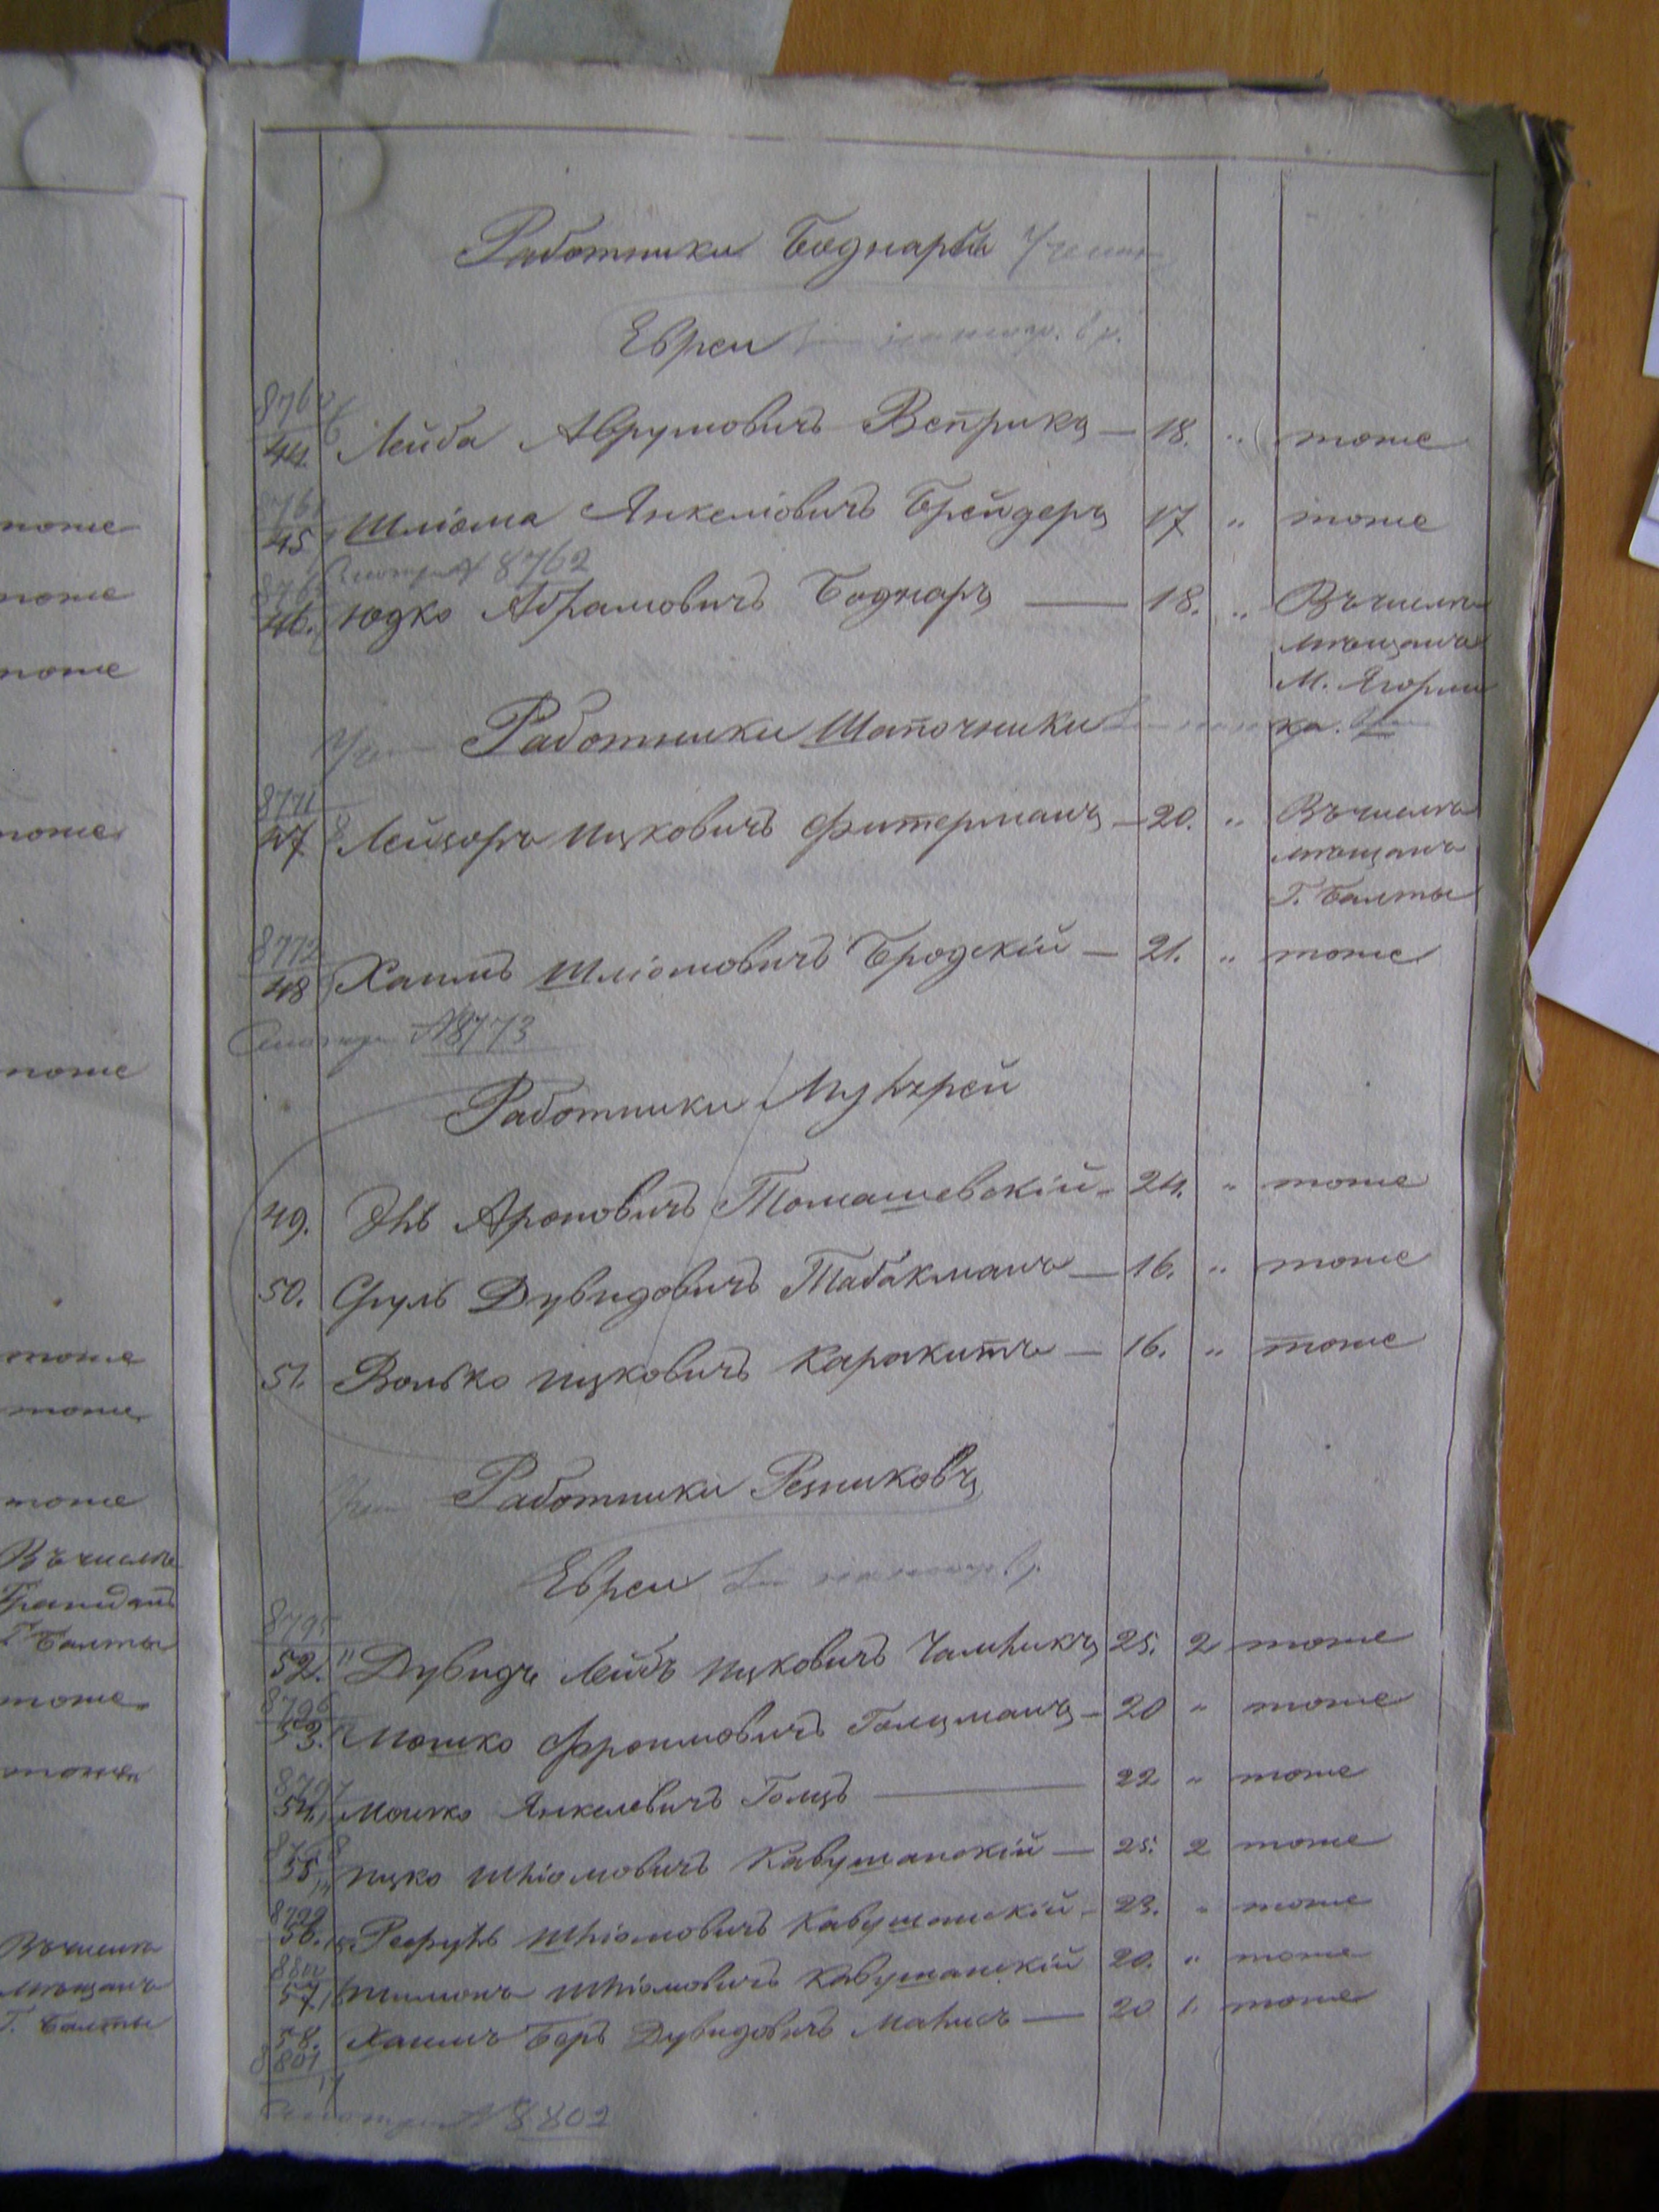 Работники Боднары
Евреи
44. Лейба Аврумовичъ Веприкъ — 18. „ тоже
45 Шліома Янкеліовичъ Брейдеръ 17 „ тоже
8762
46. Юдко Абрамовичъ Боднаръ — 18. „ Въ числѣ
мѣщанъ
М. Ягорлы
Работники Шапочники
ка.
8771
47 Лейзоръ Ицковичъ Фитерманъ — 20. „ Въ числѣ
мѣщанъ
Г. Балты
8772
48 Хаимъ Шліомовичъ Бродскій — 21. „ тоже
Смотри №8773
Работники
49. Ароновичъ Томашевскій — 24. „ тоже
50. Сруль Дувидовичъ Табакманъ — 16. „ тоже
51. Волько Ицковичъ Каракитъ — 16. „ тоже
Работники Резниковъ
Евреи
8795
52. Дувидъ Лейбъ Ицковичъ 25. 2 тоже
8796
53. Мошко Фроимовичъ Голцманъ — 20 „ тоже
8797
54. Мошко Янкелевичъ Голцъ — 22 „ тоже
8798
55 Ицко Шліомовичъ Кавушанскій — 25. 2 тоже
8799
56. Шліомовичъ Кавушанскій — 23. „ тоже
8800
57 Шимонъ Шліомовичъ Кавушанскій 20. „ тоже
58. Хаимъ Беръ Дувидовичъ — 20 1. тоже
8801
Смотри №8802
тоже
тоже
тоже
тоже
тоже
тоже
тоже
тоже
Въ числѣ
Гражданъ
Г. Балты
тоже
тоже
Въ числѣ
мѣщанъ
Г. Балты